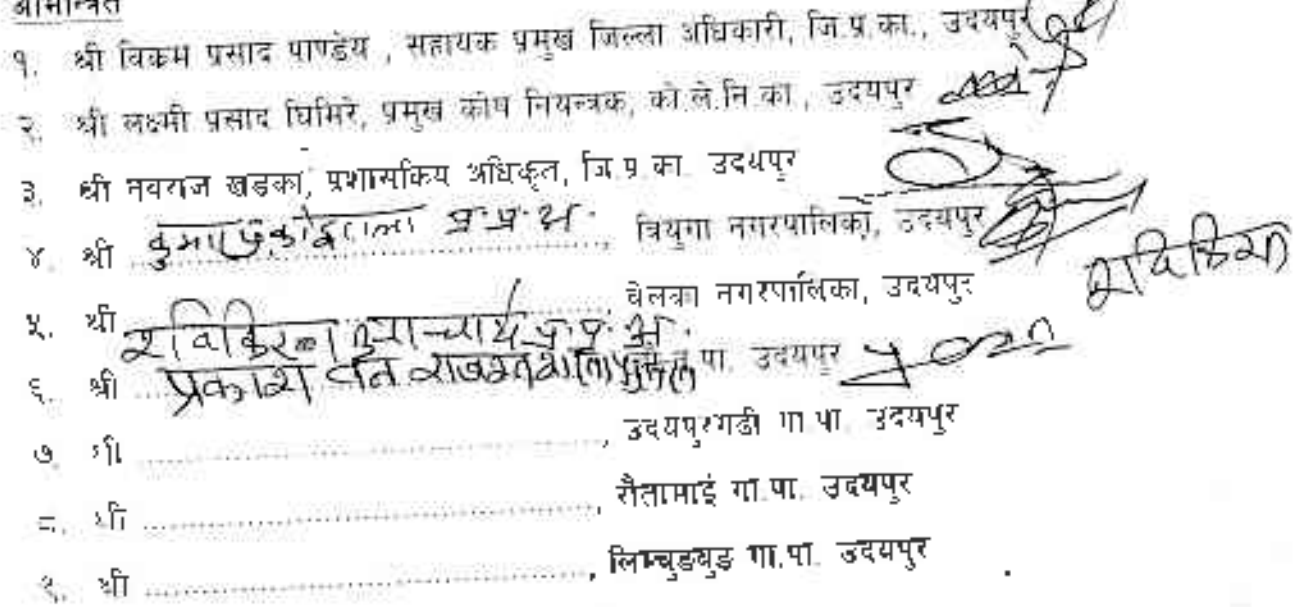 आमन्त्रित
१. श्री विक्रम प्रसाद पाण्डेय , सहायक प्रमुख जिल्ला अधिकारी, जि.प्र.का., उदयपुर
२. श्री लक्ष्मी प्रसाद घिमिरे, प्रमुख कोष नियन्त्रक, को.ले.नि.का., उदयपुर
३. श्री नवराज खड्का, प्रशासकिय अधिकृत, जि.प्र.का. उदयपुर
४. श्री प्र.प्र.अ. त्रियुगा नगरपालिका, उदयपुर
५. श्री रविकिरण प्र.प्र.अ. बेलका नगरपालिका, उदयपुर रविकिरण
६. श्री प्रकाश पा. उदयपुर
७. श्री ........................, उदयपुरगढी गा.पा. उदयपुर
८. श्री ........................, रौतामाई गा.पा. उदयपुर
९. श्री ........................, लिम्चुङबुङ गा.पा. उदयपुर